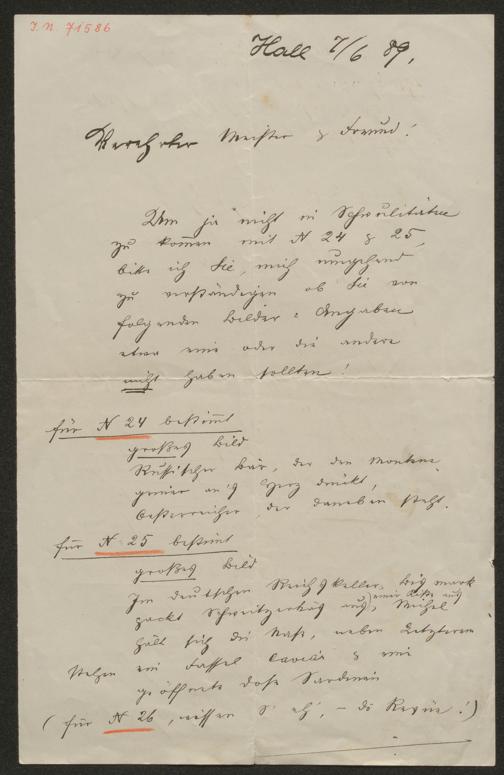 I. N. 71586
Hall 7/6 89.
Verehrter Meister & Freund!
Um ja nicht in Schwulitäten
zu kom̄en mit N 24 & 25,
bitte ich Sie, mich umgehend
zu verständigen ob Sie von
folgenden Bilder = Angaben
etwa eine oder die andere
nicht haben sollten!
für N 24 bestim̄t
großes Bild
Russischer Bär, der den Montene
griner an's Herz drückt,
Oesterreicher, der daneben steht.
für N 25 bestim̄t
großes Bild
Im deutschen Reichskeller, Bismark
packt Schweitzerkäs aus, Michel
hält sich die Nase, neben Letzterem
stehen ein Fassel Caviar & eine
geöffnete Dose Sardinen
(für N 26, wissen S' eh', – die Revue!)